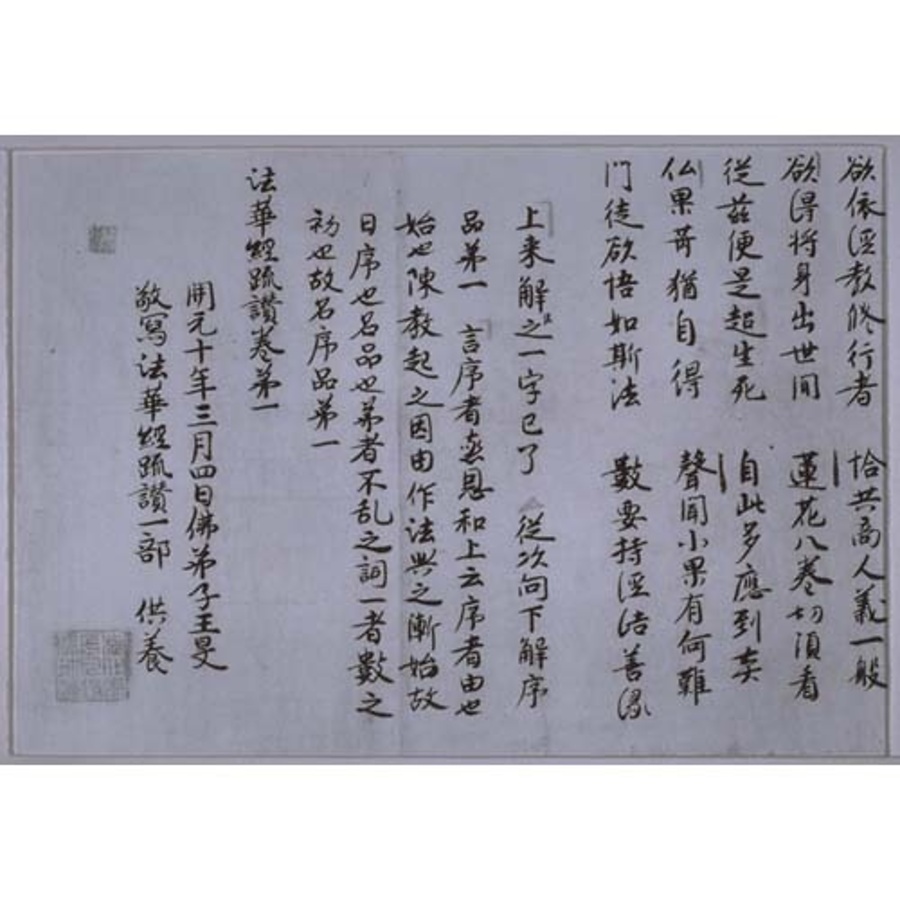 欲依經教修行者 恰共高人義一般
欲得將身出世間 蓮花八卷切須看
從茲便是超生死 自此多應到
仏果 猶自得 聲聞小果有何難
門徒欲悟如斯法 數要持經結善緣
上来解之一字已了 從次向下解序
品弟一 言序者 恩和上云序者由也
始也陳教起之因由作法興之漸始故
曰序也名品也弟者不乱之詞一者數之
初也故名序品弟一
法華經疏讚卷弟一
開元十年三月四日佛弟子王旻
敬寫法華經疏讚一部 供養